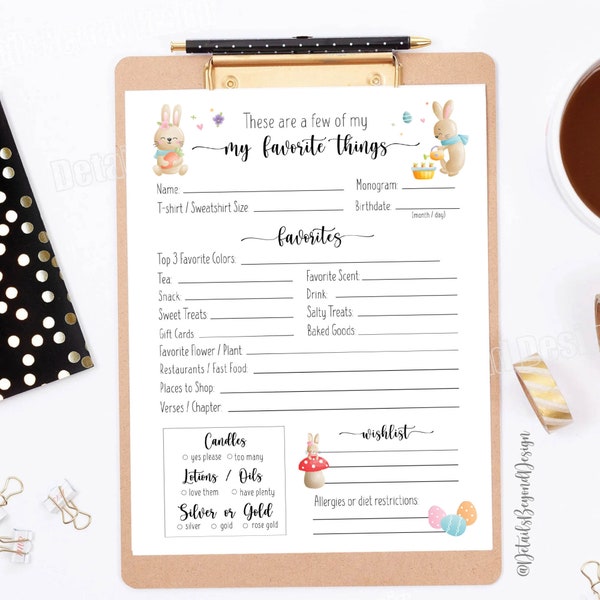 These are a few of my
my favorite things
Name: Monogram:
T-shirt / Sweatshirt Size Birthdate:
(month / day)
favorites
Top 3 Favorite Colors:
Tea: Favorite Scent:
Snack: Drink:
Sweet Treats: Salty Treats:
Gift Cards Baked Goods
Favorite Flower / Plant
Restaurants / Fast Food:
Places to Shop:
Verses / Chapter
Candles
yes please too many
Lotions / Oils
love them have plenty
Silver or Gold
silver gold rose gold
wishlist
Allergies or diet restrictions:
@DetailsBeyondDesign